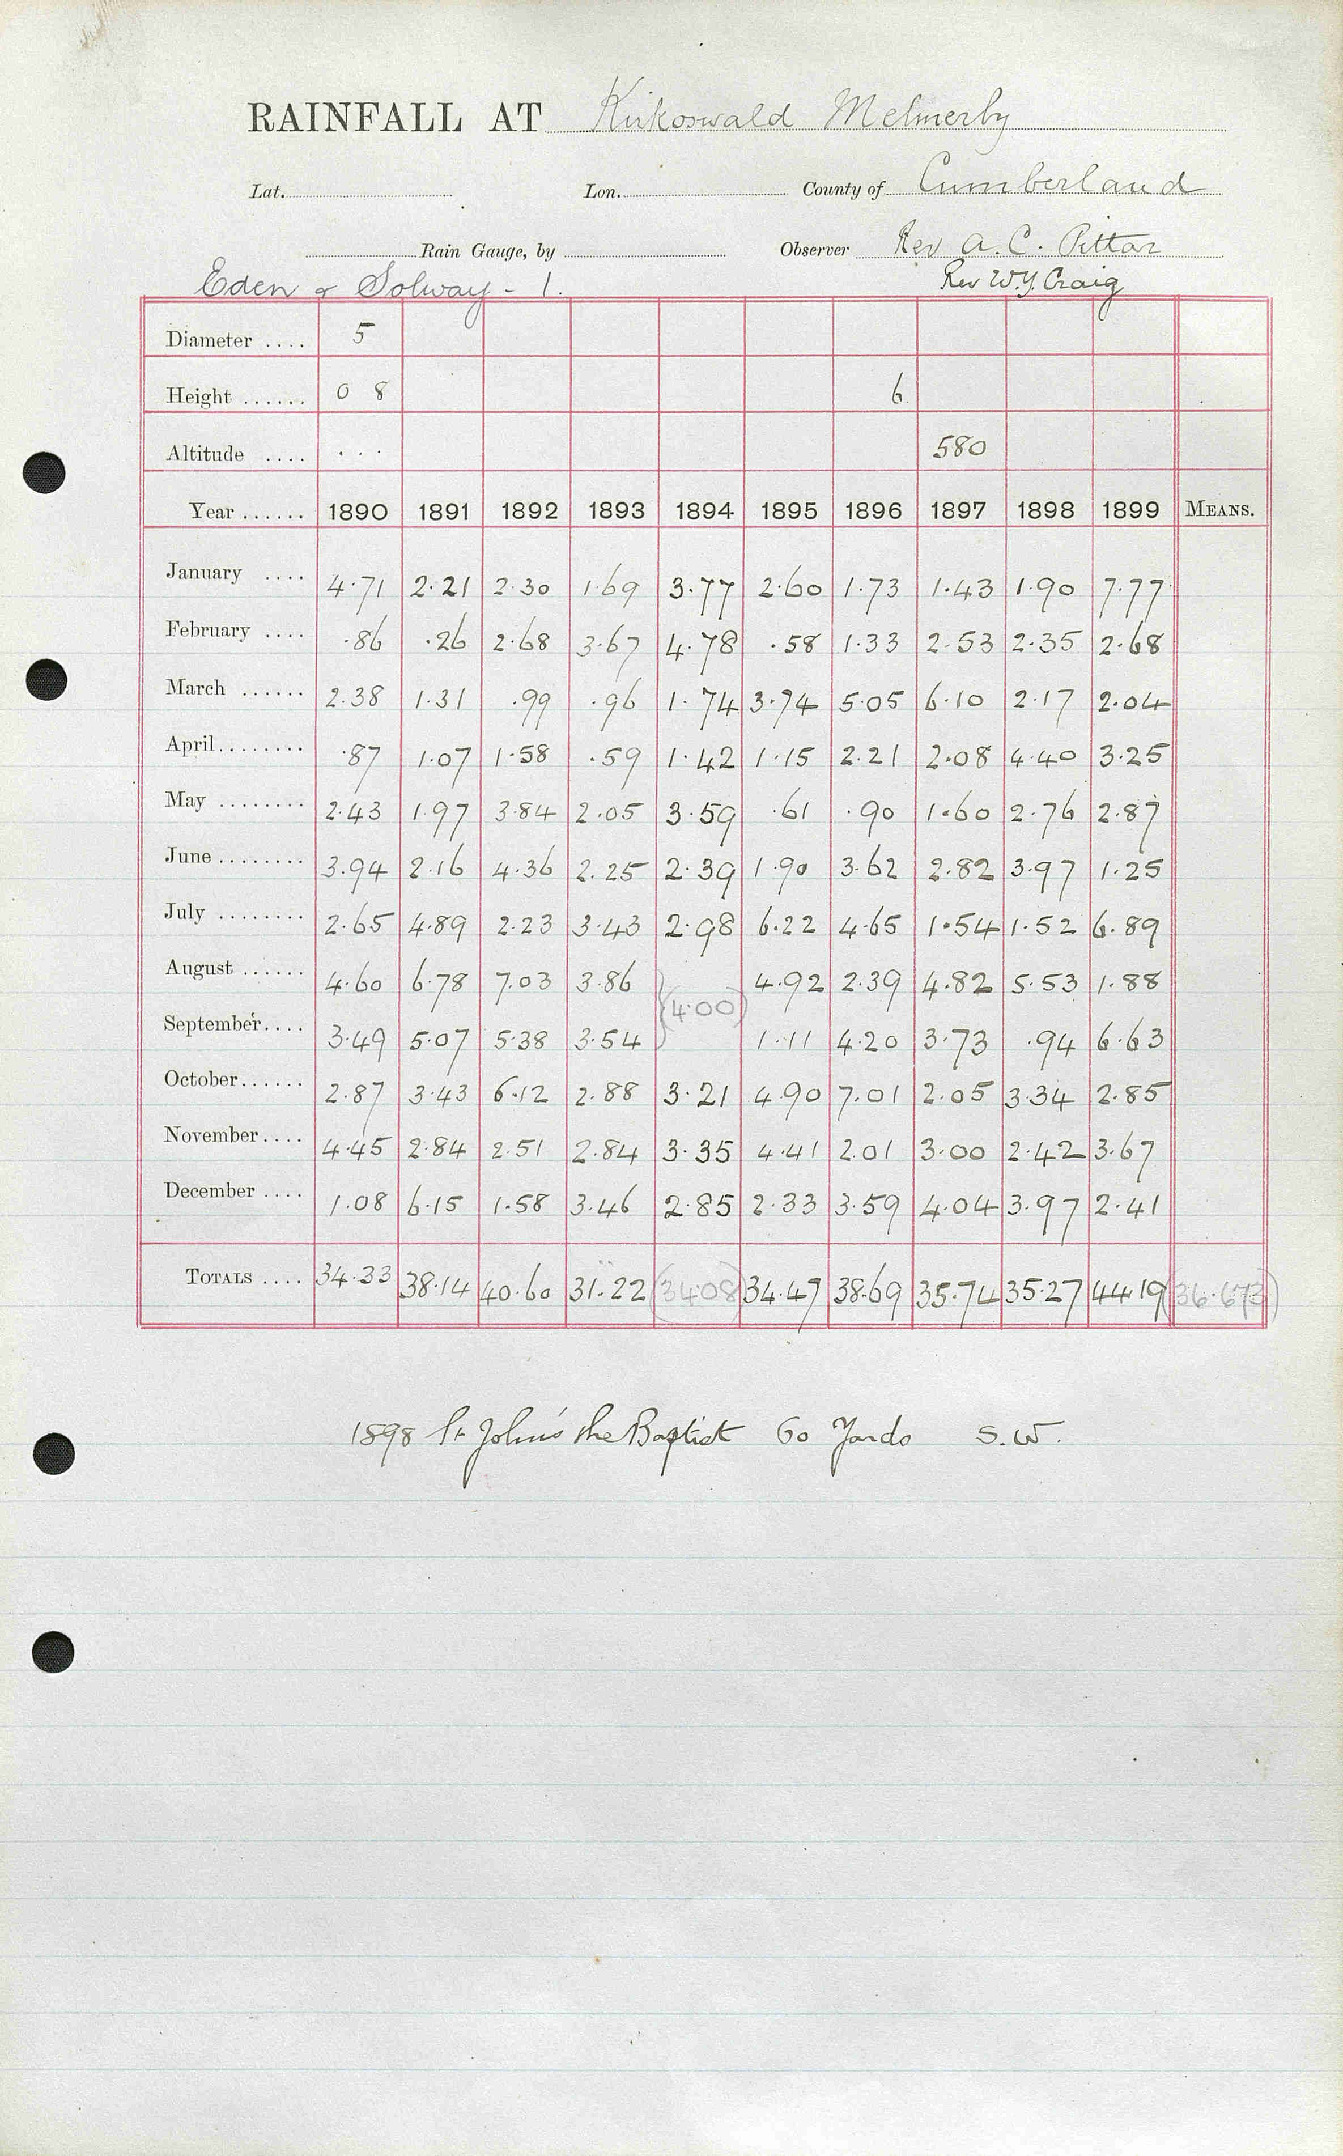 RAINFALL AT Kirkoswald Melmerby
Lat. Lon. County of Cumberland
Rain Gauge, by Observer Rev A. C. Pittar
Eden & Solway - 1. Rev W.Y. Craig
Diameter .... 5
Height ...... 0 8 6
Altitude .... ... 580
Year ...... 1890 1891 1892 1893 1894 1895 1896 1897 1898 1899 MEANS.
January .... 4.71 2.21 2.30 1.69 3.77 2.60 1.73 1.43 1.90 7.77
February .... .86 .26 2.68 3.67 4.78 .58 1.33 2.53 2.35 2.68
March ...... 2.38 1.31 .99 .96 1.74 3.74 5.05 6.10 2.17 2.04
April........ .87 1.07 1.58 .59 1.42 1.15 2.21 2.08 4.40 3.25
May ........ 2.43 1.97 3.84 2.05 3.59 .61 .90 1.60 2.76 2.87
June ........ 3.94 2.16 4.36 2.25 2.39 1.90 3.62 2.82 3.97 1.25
July ........ 2.65 4.89 2.23 3.43 2.98 6.22 4.65 1.54 1.52 6.89
August ...... 4.60 6.78 7.03 3.86 4.92 2.39 4.82 5.53 1.88
(4.00)
September.... 3.49 5.07 5.38 3.54 1.11 4.20 3.73 .94 6.63
October...... 2.87 3.43 6.12 2.88 3.21 4.90 7.01 2.05 3.34 2.85
November.... 4.45 2.84 2.51 2.84 3.35 4.41 2.01 3.00 2.42 3.67
December .... 1.08 6.15 1.58 3.46 2.85 2.33 3.59 4.04 3.97 2.41
TOTALS .... 34.33 38.14 40.60 31.22 (34.08) 34.47 38.69 35.74 35.27 44.19 (36.673)
1898 St John's the Baptist 60 Yards S.W.